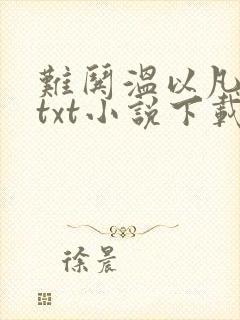 難鬨溫以凡
txt小說下載
徐晨